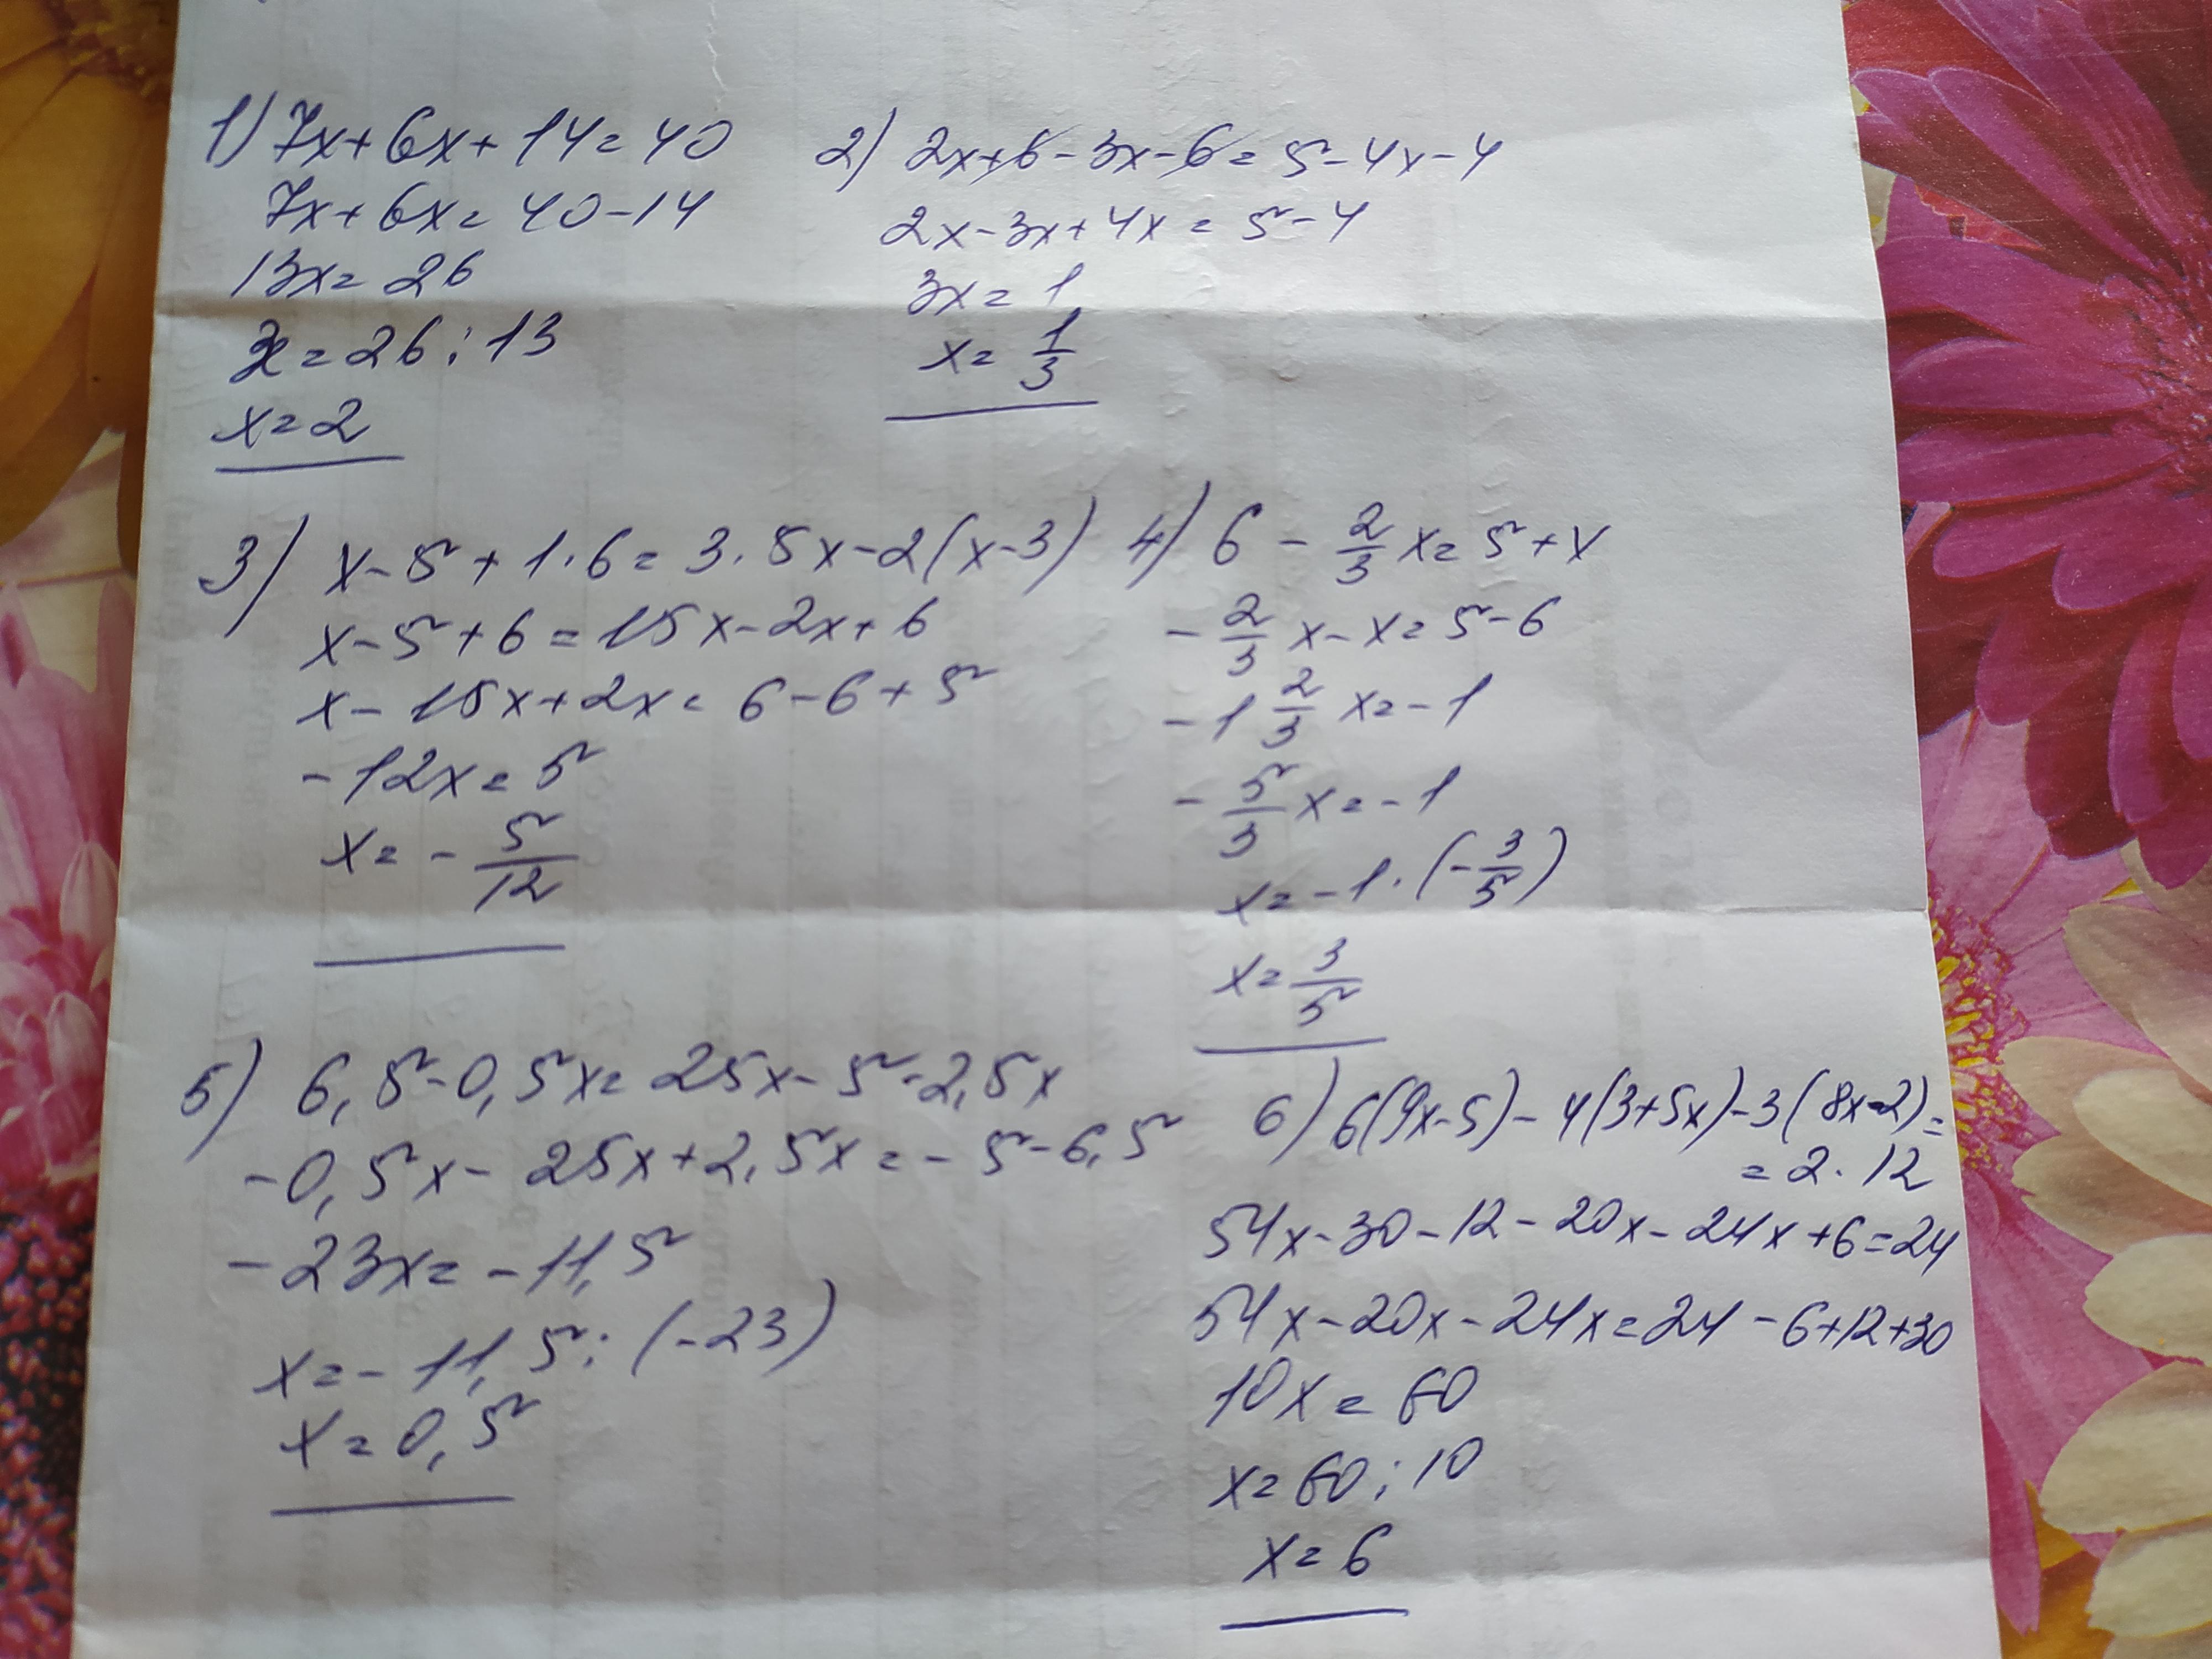 1) 7x+6x+14=40
7x+6x=40-14
13x=26
x=26:13
x=2
2) 2x+6-3x-6=5-4x-4
2x-3x+4x=5-4
3x=1
x=1/3
3) x-5+1·6=3·5x-2(x-3)
x-5+6=15x-2x+6
x-15x+2x=6-6+5
-12x=5
x=-5/12
4) 6-2/3x=5+x
-2/3x-x=5-6
-1 2/3x=-1
-5/3x=-1
x=-1·(-3/5)
x=3/5
5) 6,5-0,5x=25x-5-2,5x
-0,5x-25x+2,5x=-5-6,5
-23x=-11,5
x=-11,5:(-23)
x=0,5
6) 6(9x-5)-4(3+5x)-3(8x-2)=
=2·12
54x-30-12-20x-24x+6=24
54x-20x-24x=24-6+12+30
10x=60
x=60:10
x=6